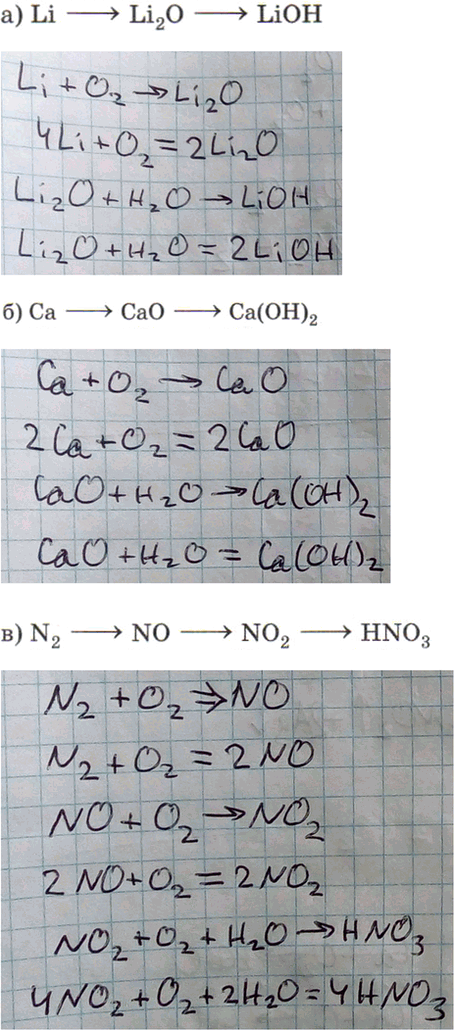 а) Li ⟶ Li₂O ⟶ LiOH
Li + O₂ → Li₂O
4Li + O₂ = 2Li₂O
Li₂O + H₂O → LiOH
Li₂O + H₂O = 2LiOH
б) Ca ⟶ CaO ⟶ Ca(OH)₂
Ca + O₂ → CaO
2Ca + O₂ = 2CaO
CaO + H₂O → Ca(OH)₂
CaO + H₂O = Ca(OH)₂
в) N₂ ⟶ NO ⟶ NO₂ ⟶ HNO₃
N₂ + O₂ ⇒ NO
N₂ + O₂ = 2NO
NO + O₂ → NO₂
2NO + O₂ = 2NO₂
NO₂ + O₂ + H₂O → HNO₃
4NO₂ + O₂ + 2H₂O = 4HNO₃